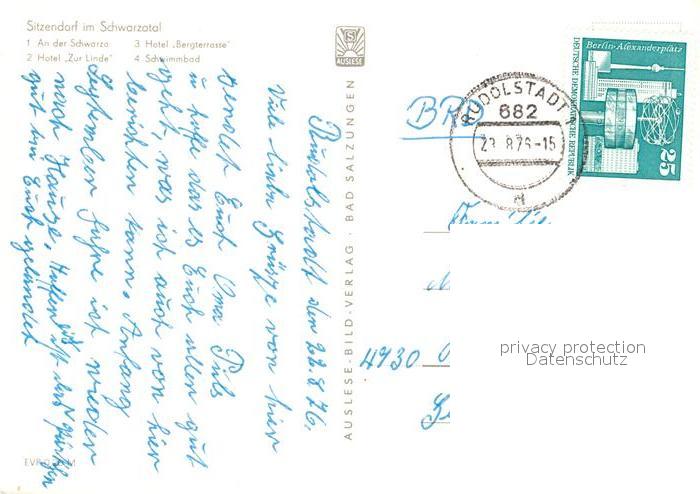 Sitzendorf im Schwarzatal
1 An der Schwarza 3 Hotel „Bergterrasse"
2 Hotel „Zur Linde" 4 Schwimmbad
AUSLESE
AUSLESE-BILD-VERLAG · BAD SALZUNGEN
Rudolstadt den 22.8.76.
Viele liebe Grüße von hier
sendet Euch Oma Pils
u. hoffe das es Euch allen gut
geht, was ich auch von hier
berichten kann. Anfang
September fahre ich wieder
nach Hause. Hoffentlich ist
gut bei Euch gelandet
BRD
RUDOLSTADT 1
682
23.8.76-15
d
Berlin-Alexanderplatz
DEUTSCHE DEMOKRATISCHE REPUBLIK
25
Familie
4930
privacy protection
Datenschutz